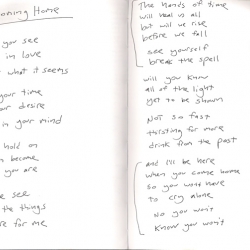 oming Home
you see
in love
what it seems
your time
our desire
in your mind
hold on
n become
you are
e see
the things
ere for me
The hands of time
will heal it all
but will we rise
before we fall
see yourself
break the spell
will you know
all of the light
yet to be shown
Not so fast
thirsting for more
drink from the past
and I'll be here
when you come home
so you wont have
to cry alone
No you won't
Know you won't